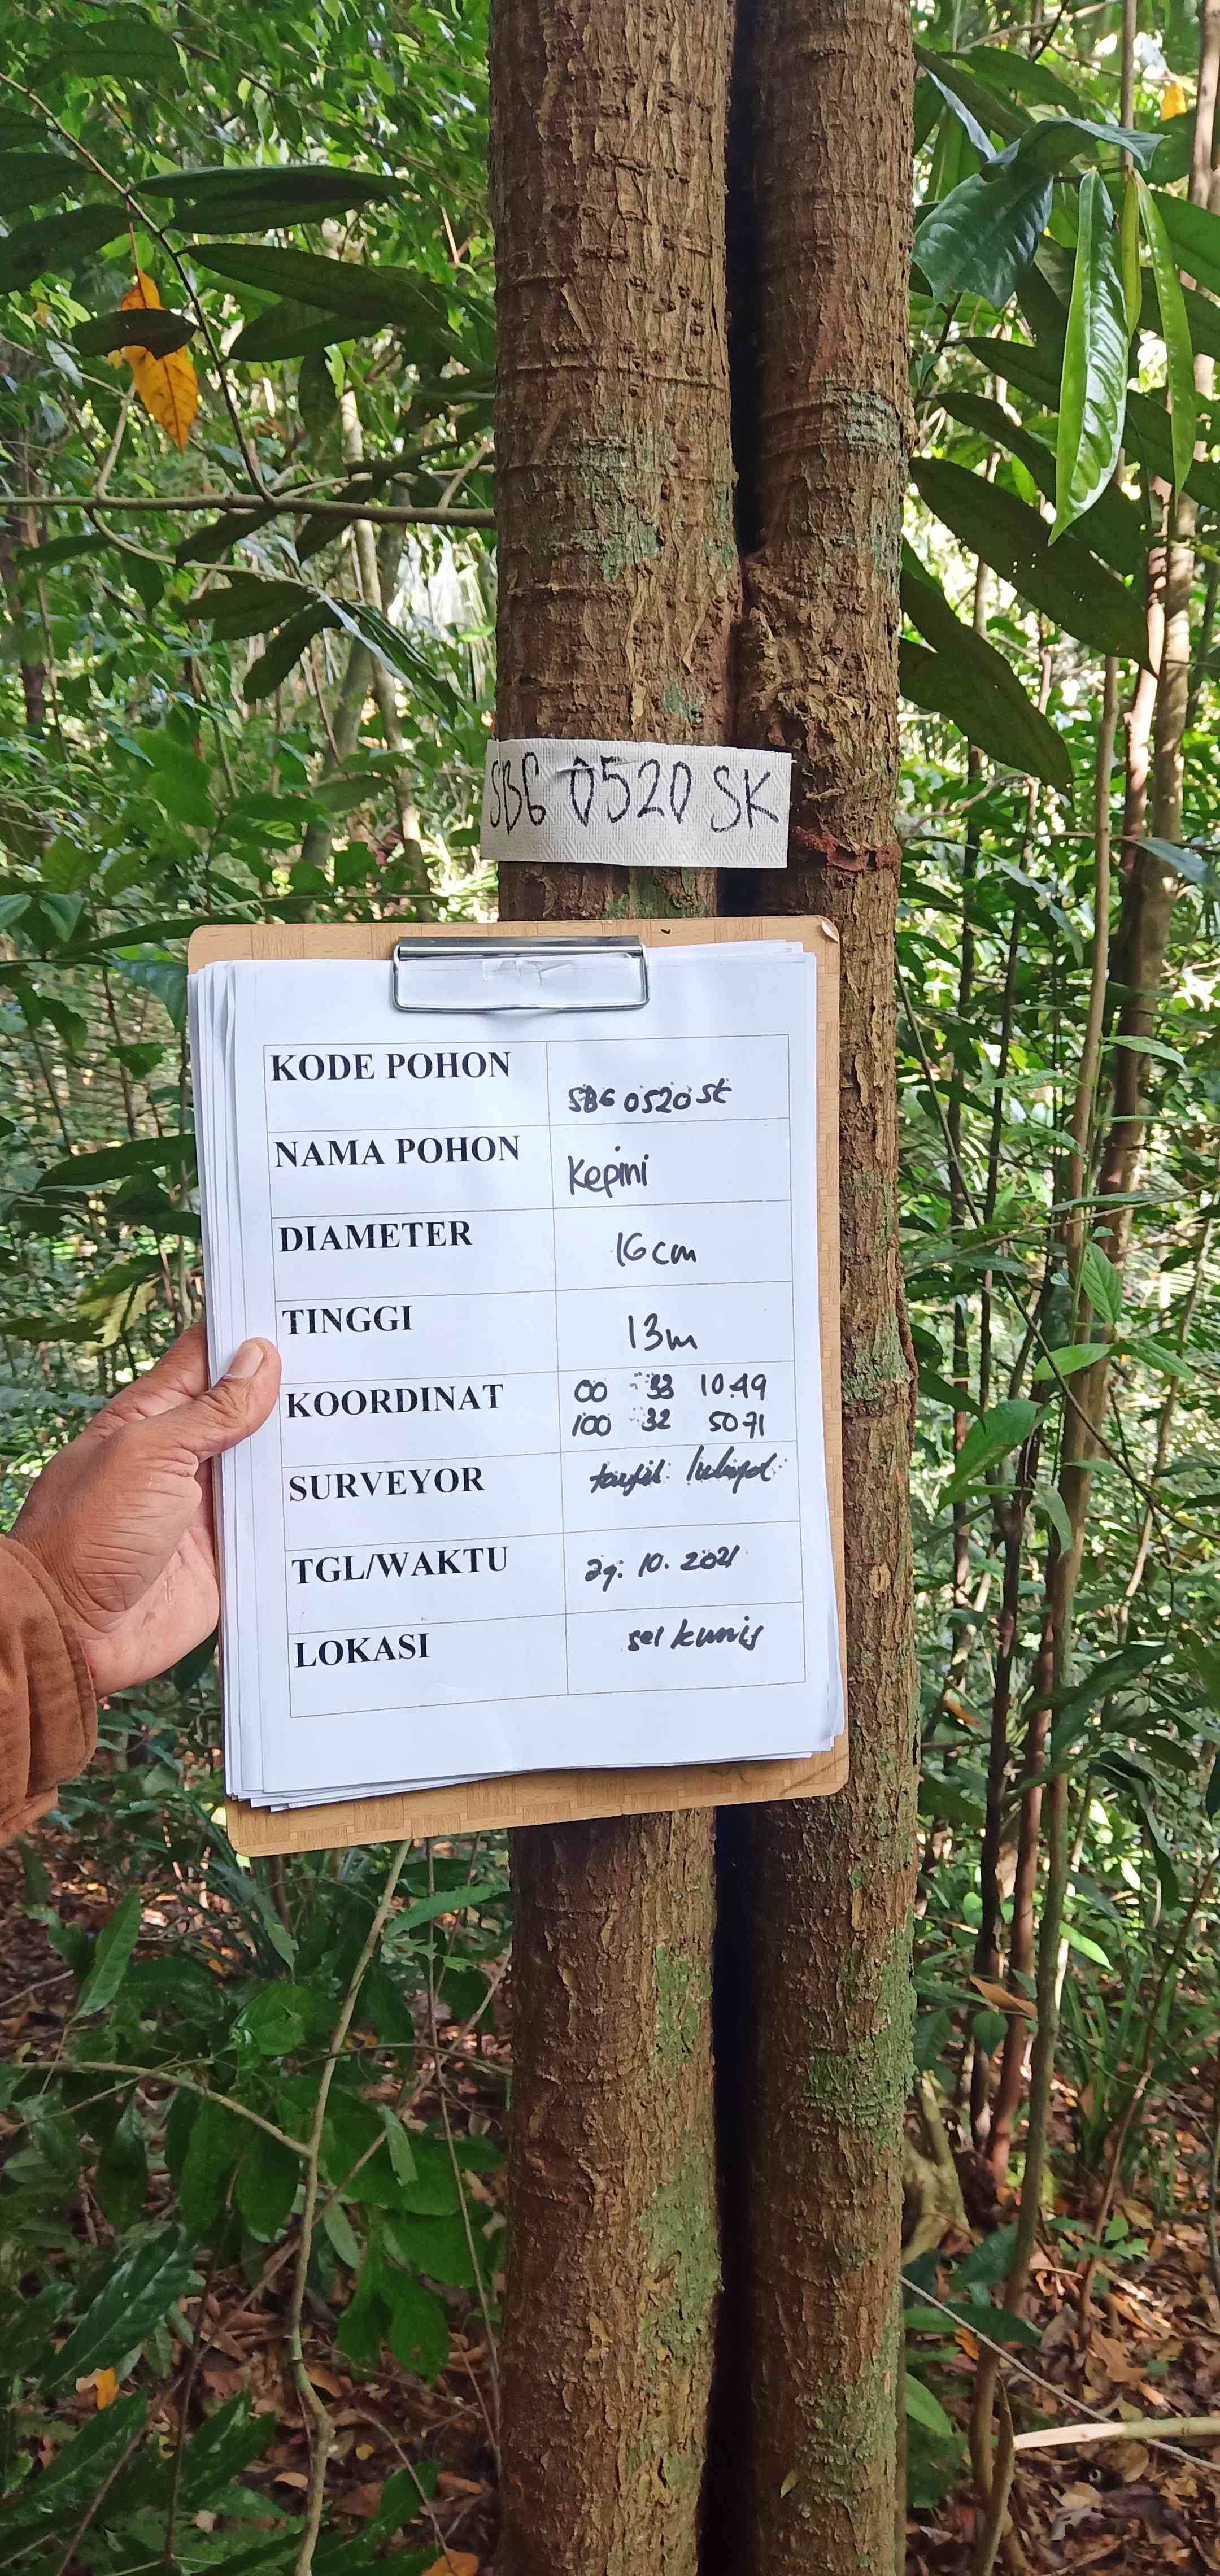 SBG 0520 SK
KODE POHON
SBG 0520 SK
NAMA POHON
Kepini
DIAMETER
16 cm
TINGGI
13 m
KOORDINAT
00 33 10.49
100 32 50 71
SURVEYOR
taufik
TGL/WAKTU
29. 10. 2021
LOKASI
sei kunis